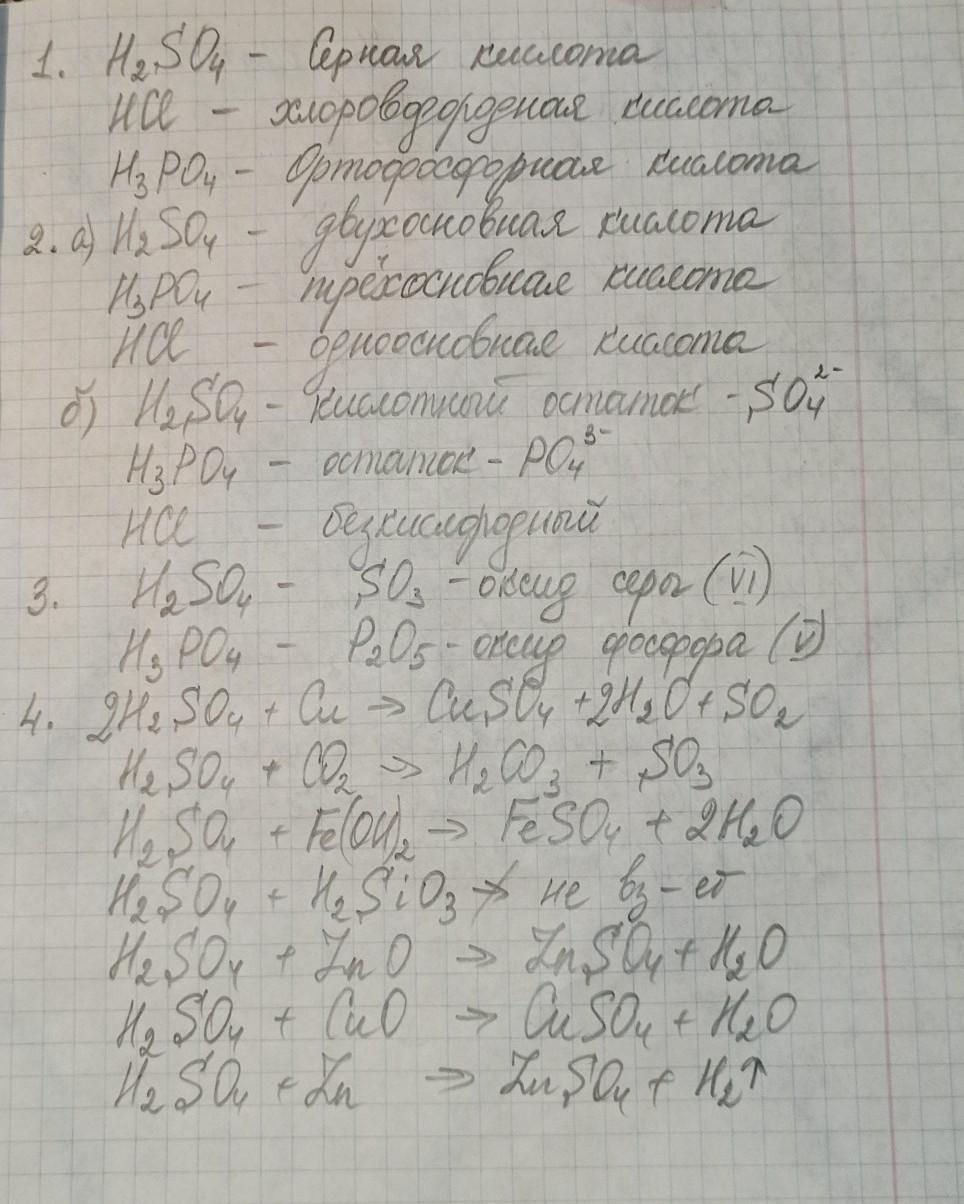 1. H₂SO₄ – Серная кислота
HCl – хлороводородная кислота
H₃PO₄ – Ортофосфорная кислота
2. а) H₂SO₄ – двухосновная кислота
H₃PO₄ – трёхосновная кислота
HCl – одноосновная кислота
б) H₂SO₄ – кислотный остаток – SO₄²⁻
H₃PO₄ – остаток – PO₄³⁻
HCl – безкислородный
3. H₂SO₄ – SO₃ – оксид серы (VI)
H₃PO₄ – P₂O₅ – оксид фосфора (V)
4. 2H₂SO₄ + Cu → CuSO₄ + 2H₂O + SO₂
H₂SO₄ + CO₂ → H₂CO₃ + SO₃
H₂SO₄ + Fe(OH)₂ → FeSO₄ + 2H₂O
H₂SO₄ + H₂SiO₃ ↛ не вз-ет
H₂SO₄ + ZnO → ZnSO₄ + H₂O
H₂SO₄ + CuO → CuSO₄ + H₂O
H₂SO₄ + Zn → ZnSO₄ + H₂↑